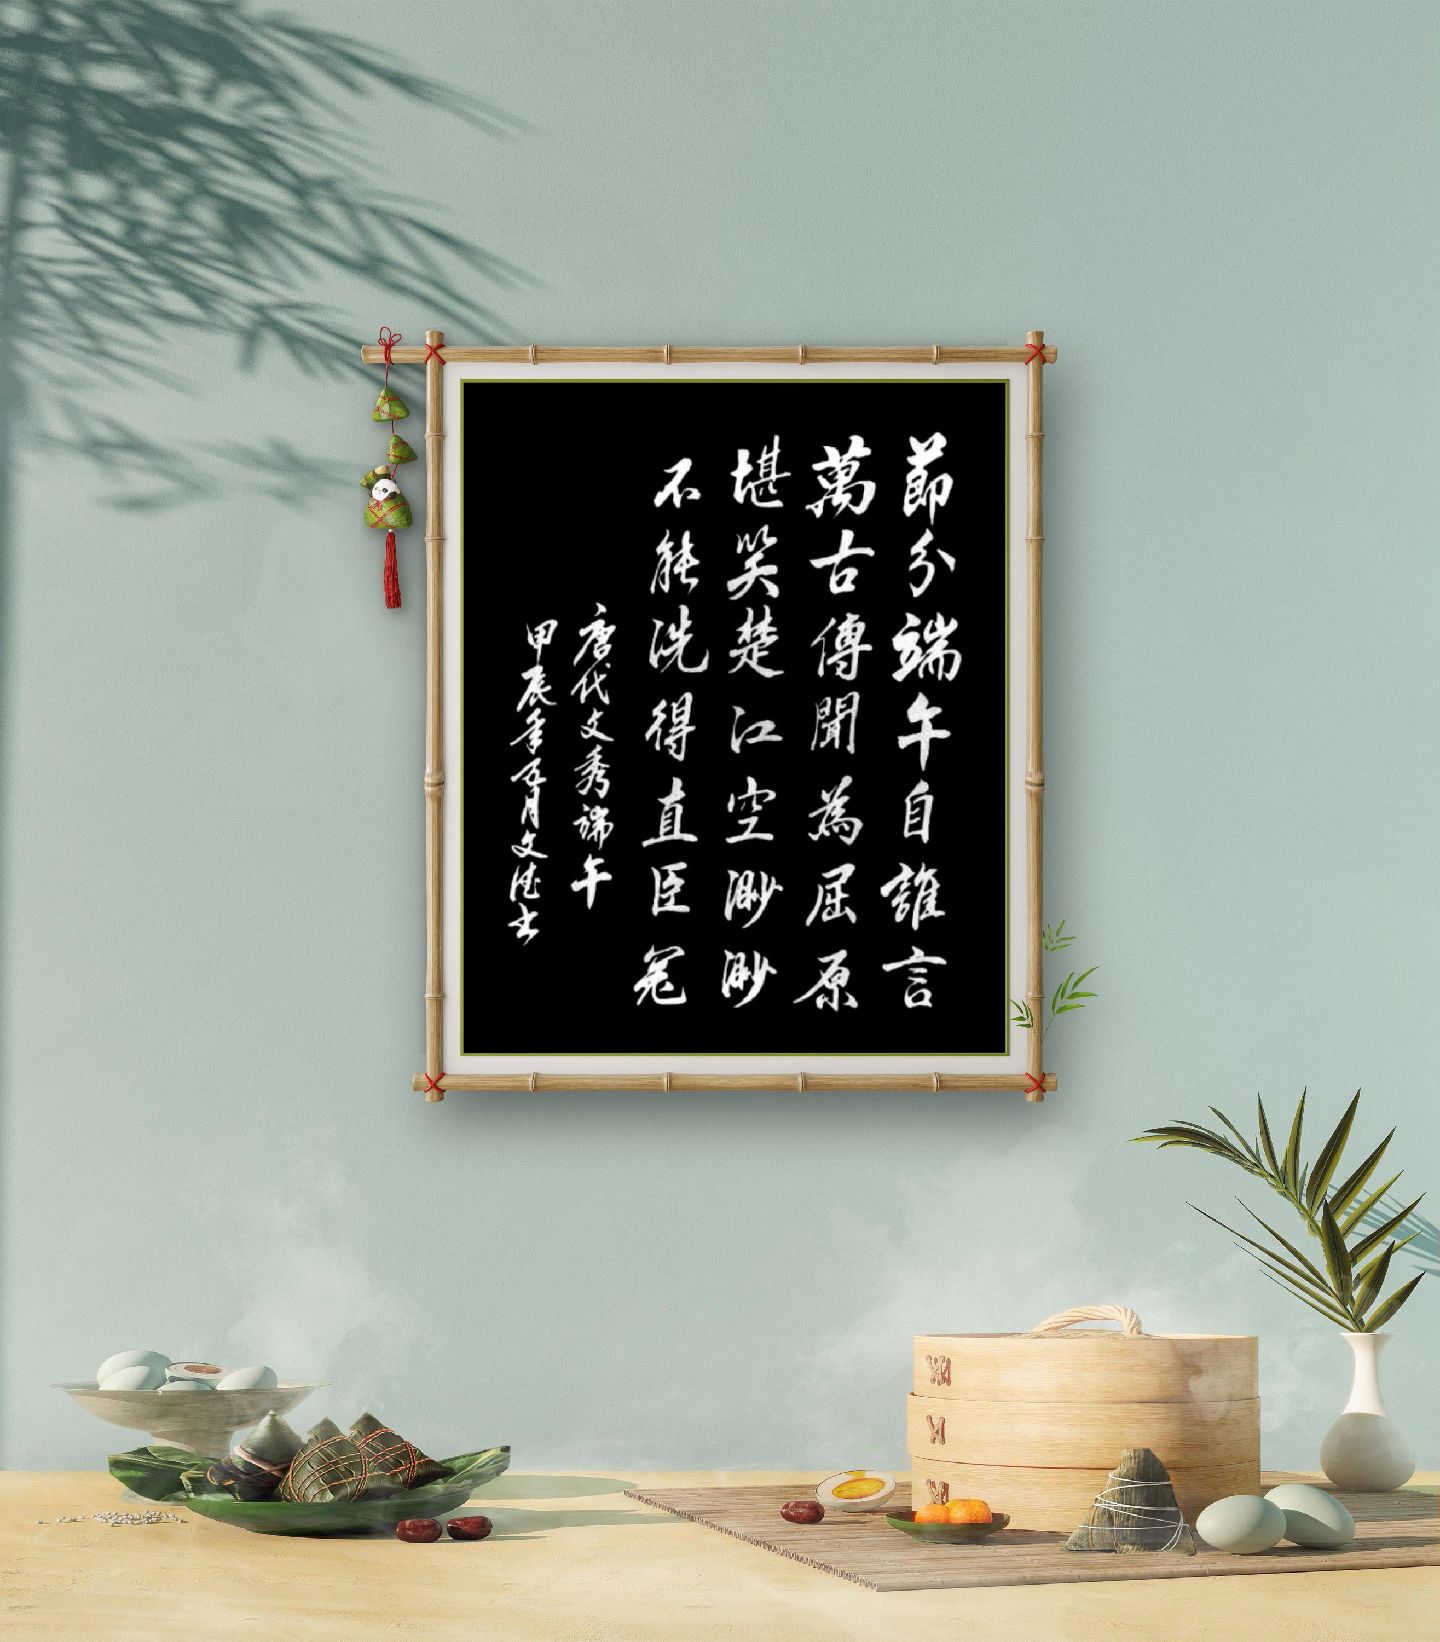 節分端午自誰言
萬古傳聞為屈原
堪笑楚江空渺渺
不能洗得直臣冤
唐代文秀端午
甲辰年五月文德書